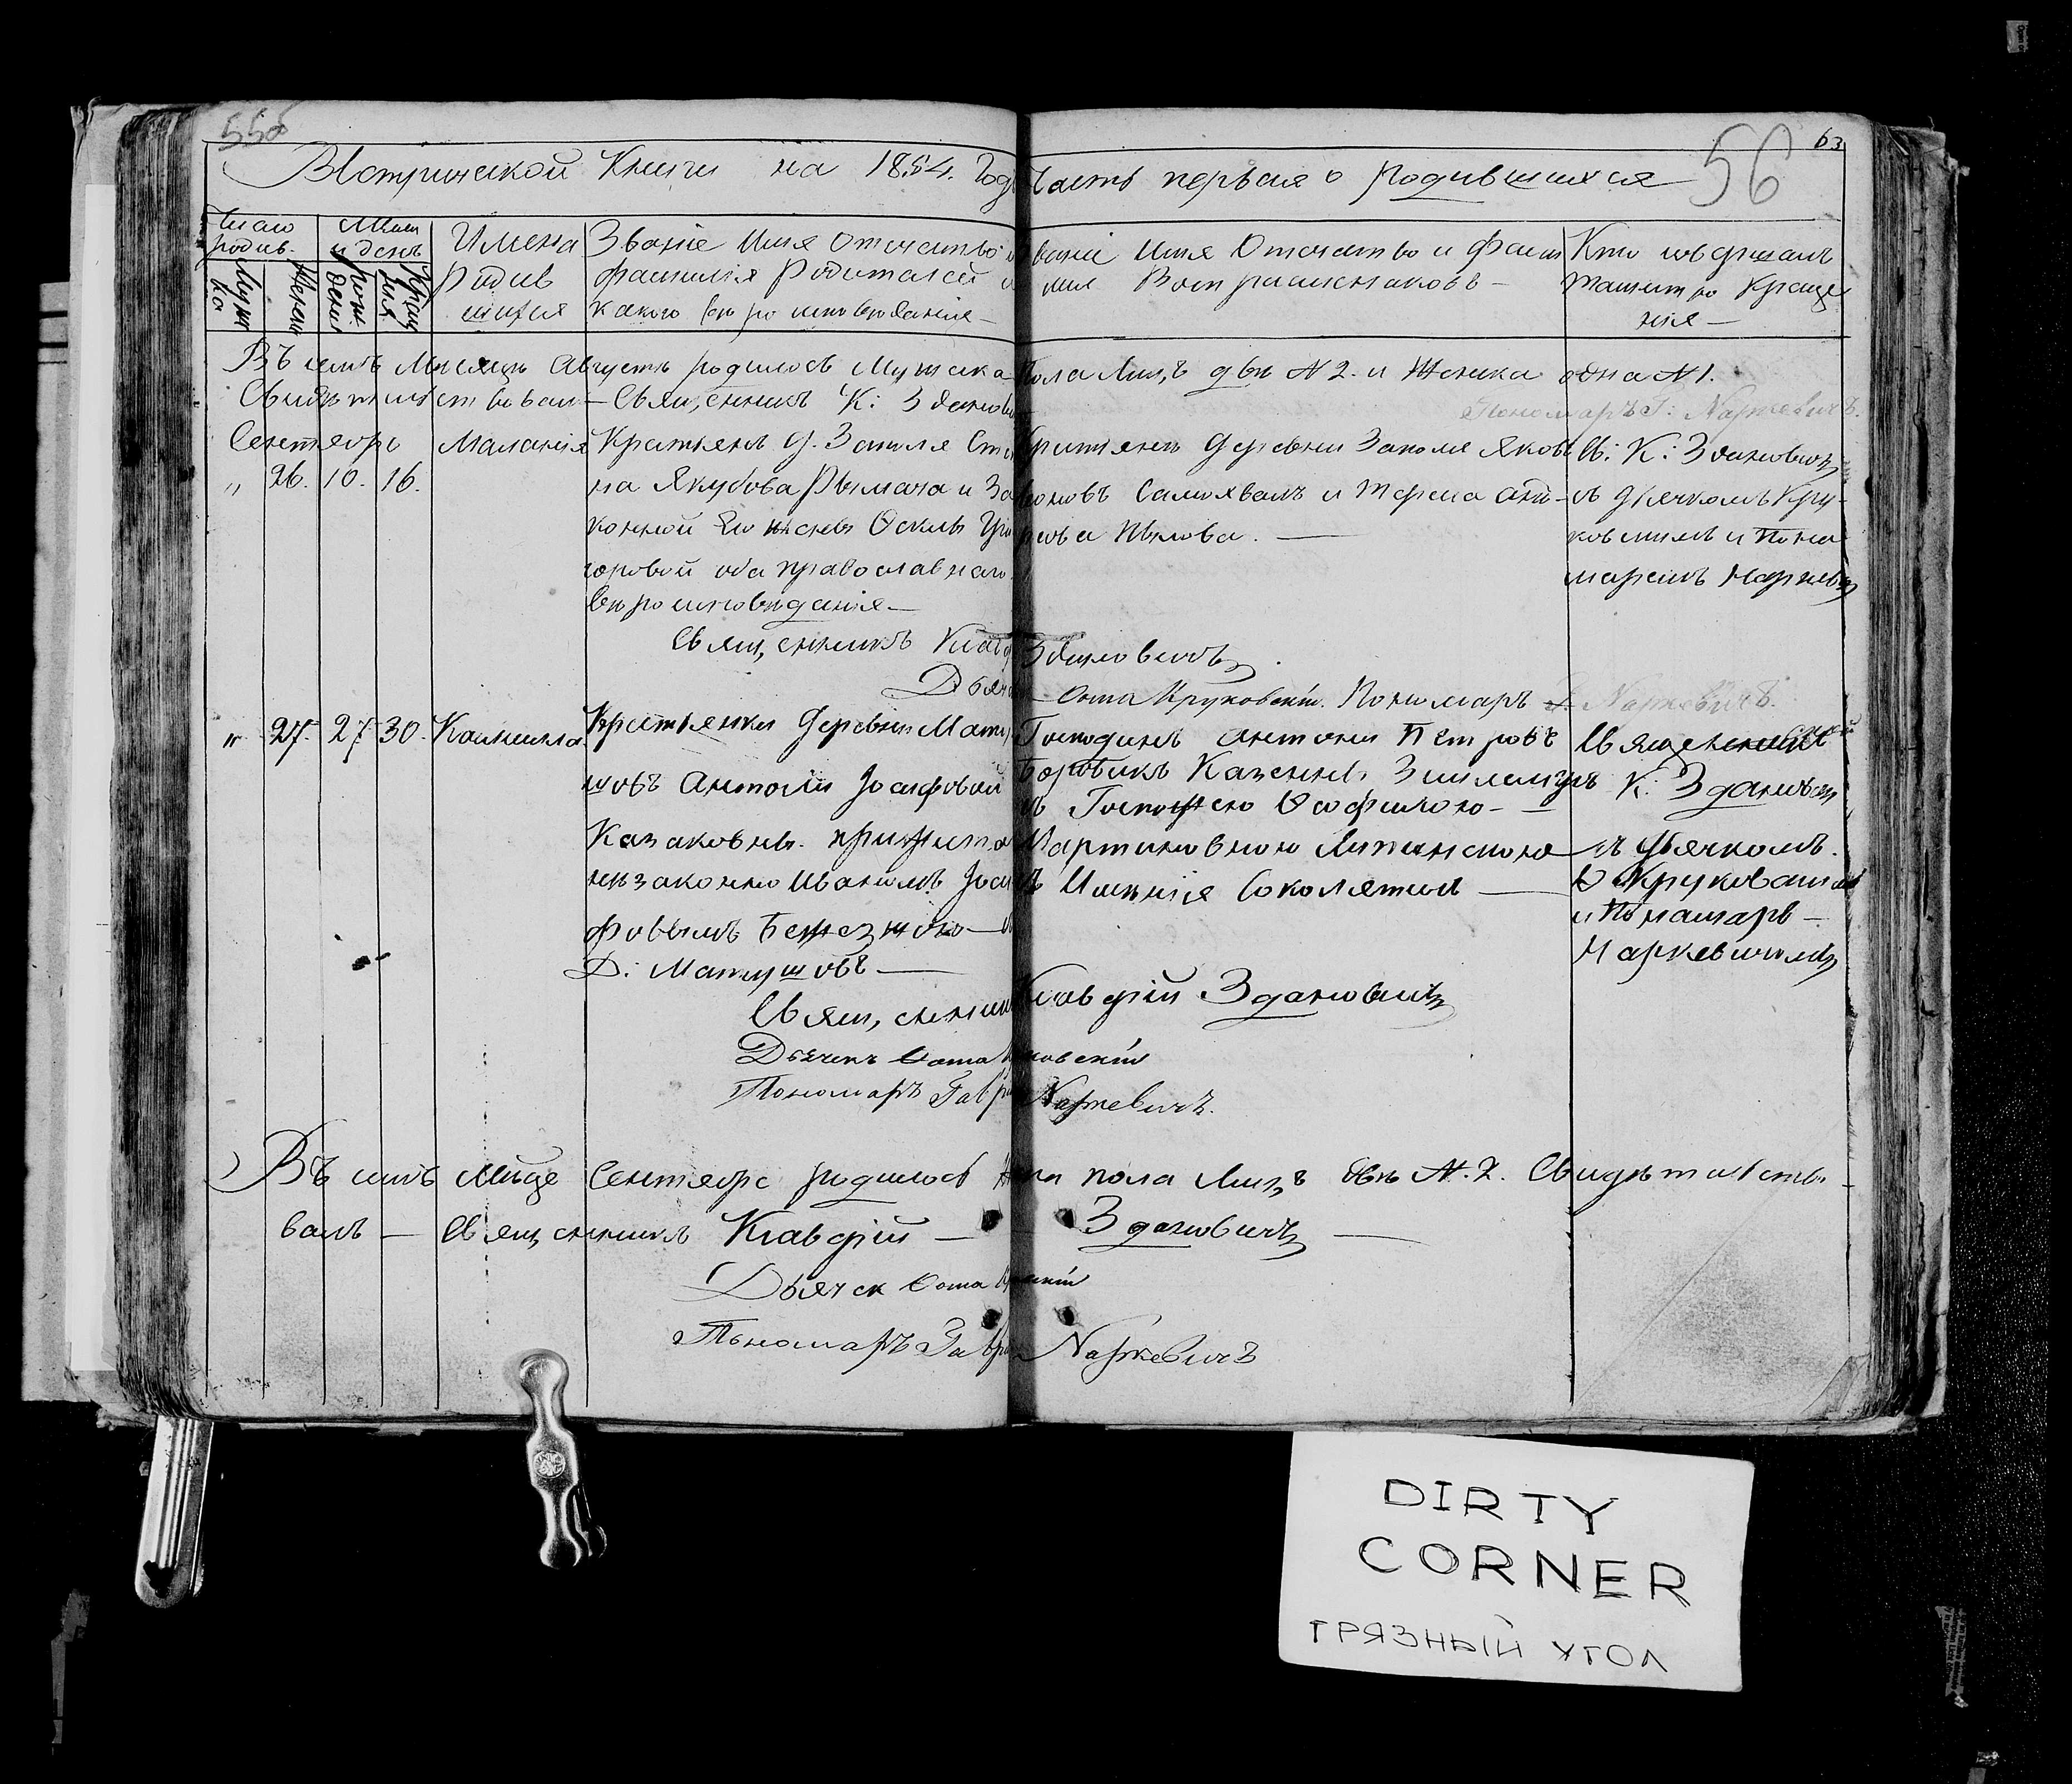 55об
56
63
Метрической Книги на 1854. Годъ Часть первая о Родившихся
Число родив.
Муж ка
Женск
Мѣс и день
Рож дения
Крещ ния
Имена Родив шихся
Званіе Имя Отчество и
фамилія Родителей и
какого вѣроисповѣданія —
Званіе Имя Отчество и Фами
лия Воспріемниковъ —
Кто совершалъ
Таинство Креще
нія —
Въ семъ Мѣсяцѣ Августѣ родилось Мужска Пола Лицъ двѣ N 2. и Женска одна N 1.
Свидѣтельствовали — Священникъ К: Зданови
Пономаръ Г: Наркевичъ.
Сентябрь
" 26. 10. 16.
Маланія
Крестьянъ д. Заполя Сте
на Якубова Рымача и За
конной Его жены Осклы Гри
горовой оба православнаго
вѣроисповѣданія —
Крестьянъ Деревни Заполя Яковъ
Самохвалъ и Тереса Анд-
реева
Св: К: Здановичъ
съ Дьячкомъ Кру-
ковскимъ и Поно
маремъ Наркевич
Священникъ Клавд Здановичъ.
Дьячекъ Фома Круковскій. Пономаръ Г. Наркевичъ.
" 27. 27. 30.
Крестьянки Деревни Мату
шовъ Антоли Іосифовой
Казаковны. прижита
незаконно Иваномъ Іоси
фовымъ
Д: Матушовъ —
Господинъ Антони Петровъ
Боровикъ Казенны Землемѣръ
съ Госпожею Феофилою —
Мартиновною
Имѣнія Соколятил —
Священникъ
К: Здановичъ
съ Дьячкомъ.
Ф Круковским
и Пономарь —
Наркевичомъ
Священник Клавдій Здановичъ
Дьячекъ Фома Круковскій
Пономаръ Гаври Наркевичъ.
Въ семъ Мѣцѣ Сентябрѣ родилось Жен пола Лицъ двѣ N. 2. Свидѣтельство
валъ — Священникъ Клавдій — Здановичъ —
Дьячек Фома Круковскій
Пономаръ Гаври Наркевичъ
DIRTY
CORNER
ГРЯЗНЫЙ УГОЛ